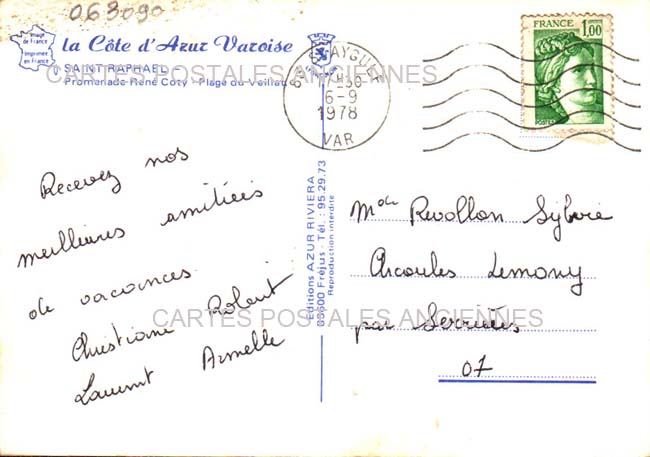 063090
Image
de France
Imprimée
en France
la Côte d'Azur Varoise
SAINT-RAPHAEL
Promenade René Coty - Plage du Veillat
CARTES POSTALES ANCIENNES
6-9
1978
VAR
FRANCE
1,00
POSTES
Recevez nos
meilleures amitiées
de vacances
Christiane Robert
Laurent Armelle
Editions AZUR RIVIERA
83600 Fréjus - Tél. : 95.29.73
Reproduction interdite
Mde Revollon Sylvie
Arcoules Lemony
par Serrières
07
CARTES POSTALES ANCIENNES